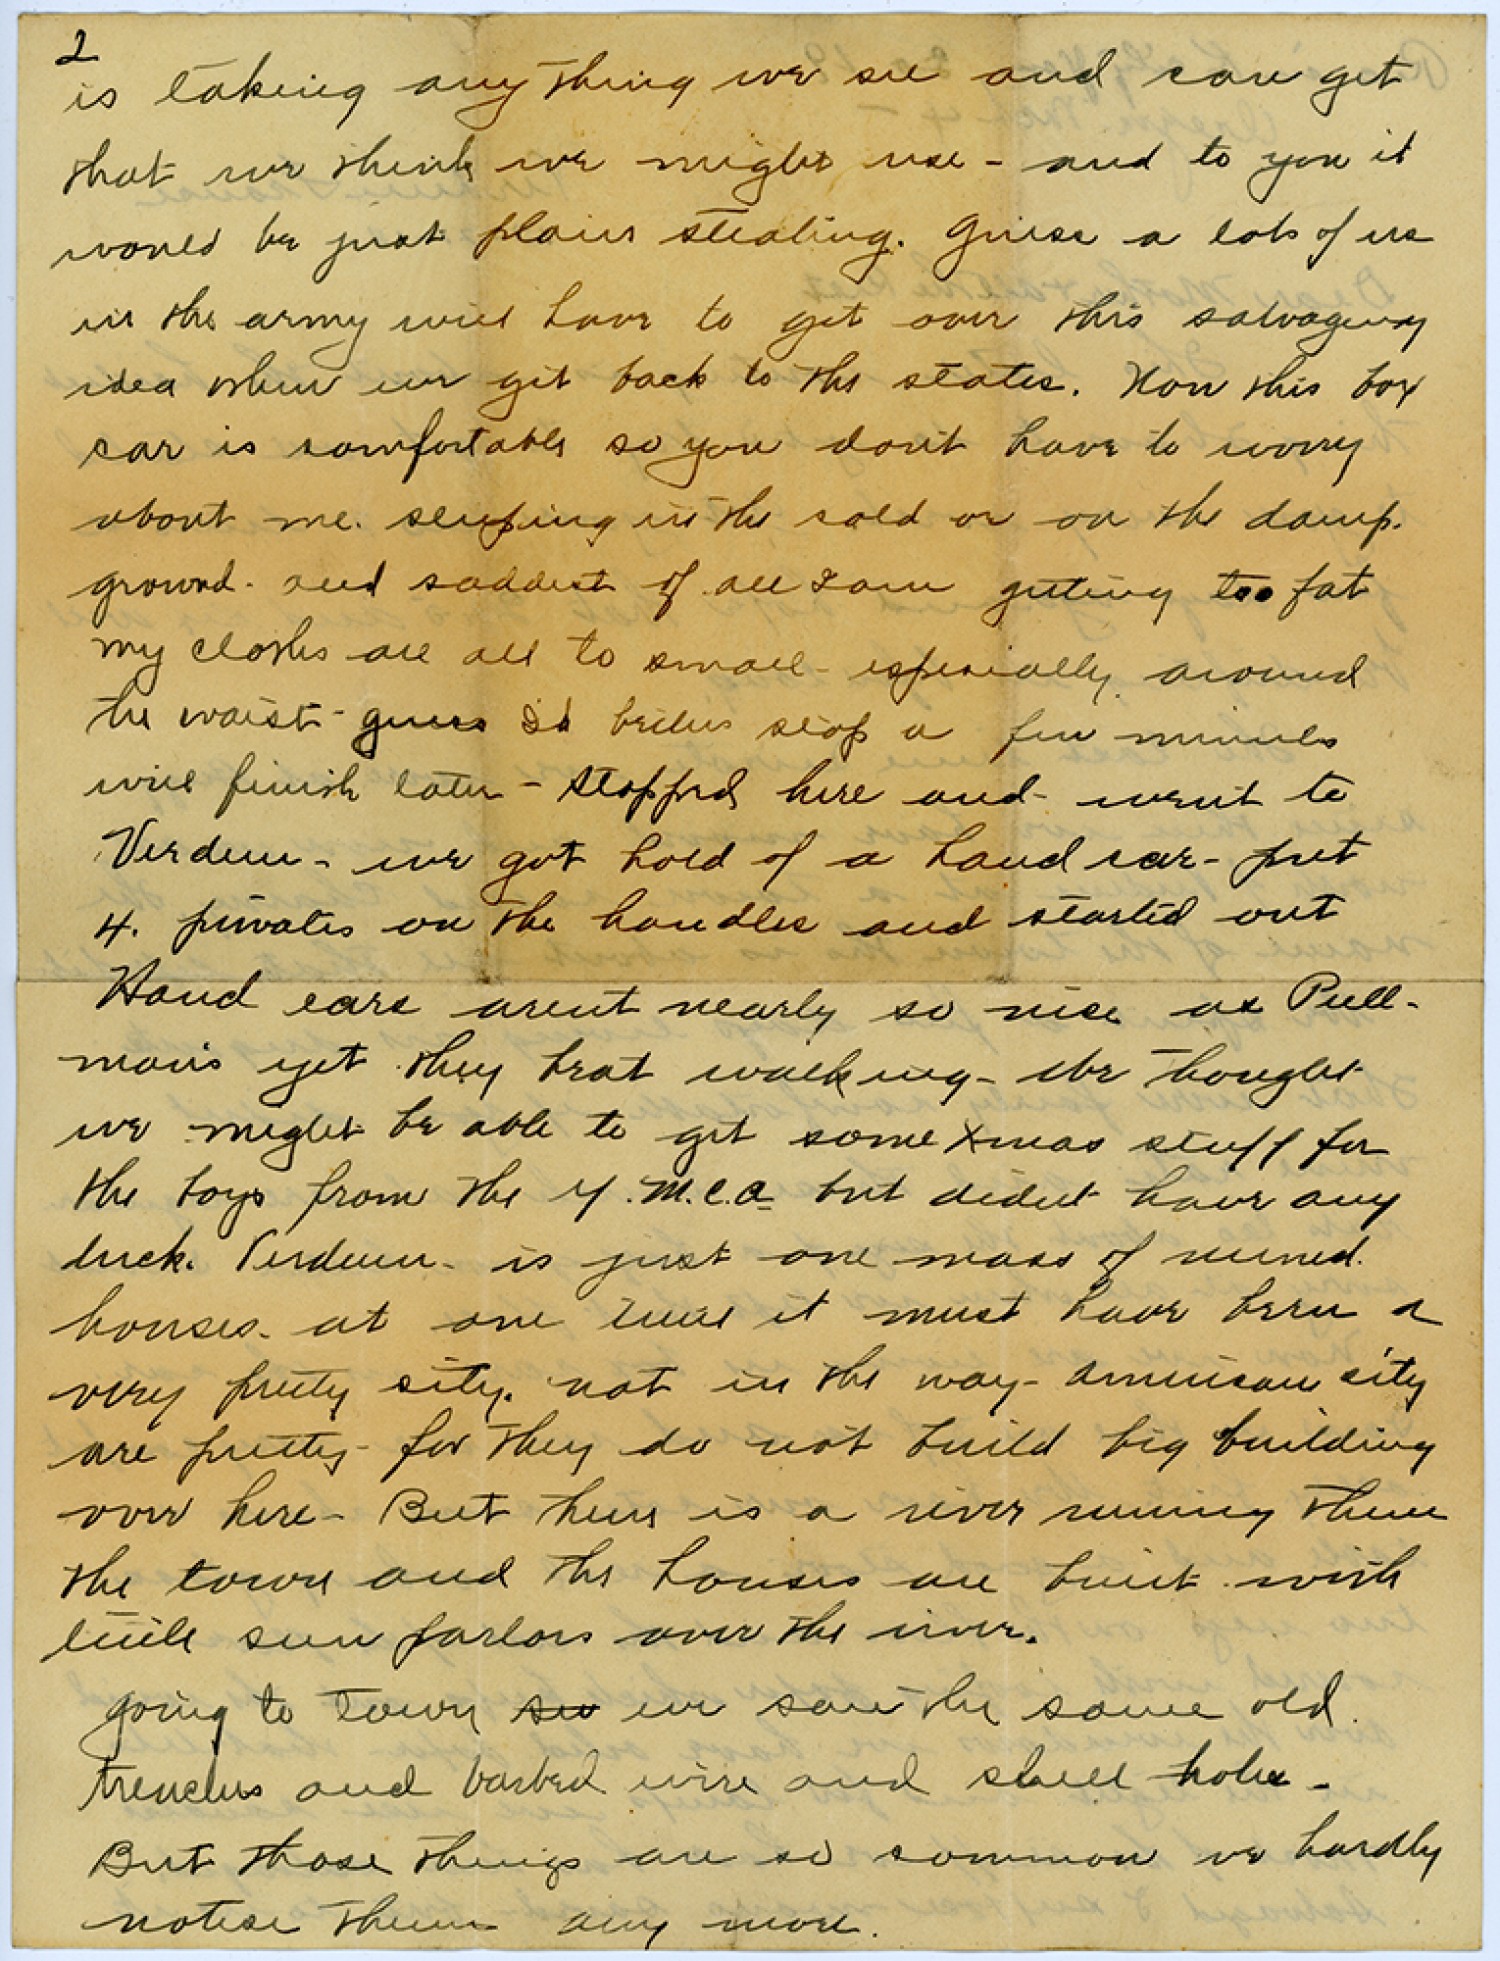 2
is taking any thing we see and can get
that we think we might use - and to you it
would be just plain stealing. Guess a lots of us
in the army will have to get over this salvaging
idea when we get back to the states. Now this box
car is comfortable so you don't have to worry
about me. sleeping in the cold or on the damp.
ground. and saddest of all I am getting too fat
my cloths are all to small - especially around
the waist - guess Id better stop a few minutes
will finish later - Stopped here and went to
Verdun - we got hold of a hand car - put
4. privates on the handles and started out
Hand cars arent nearly so nice as Pull-
man's yet they beat walking - We thought
we might be able to get some Xmas stuff for
the boys from the Y.M.C.A but didnt have any
luck. Verdun - is just one mass of ruined.
houses. at one time it must have been a
very pretty city. not in the way - American city
are pretty - for they do not build big building
over here - But there is a river running thru
the town and the houses are built with
little sun parlors over the river.
Going to Town we saw the same old
trenches and barbed wire and shell holes -
But those things are so common we hardly
notise them any more.